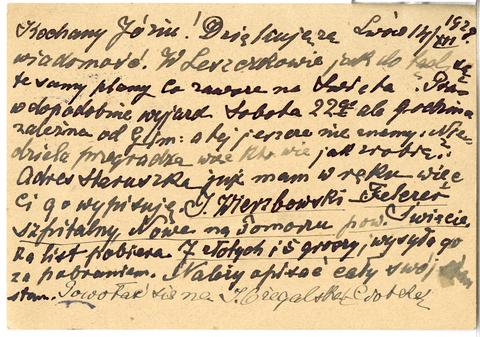 Kochany Józiu! Dziękuję za Lwów 14/XII 1928.
wiadomość. W Leszczkowie jak do tąd są
te same plany co zawsze na Święta. Praw
dopodobnie wyjazd Sobota 22go ale godzina
zależna od Gim: a tej jeszcze nie znamy. Nie
dziela przegradza więc kto wie jak zrobię.
Adres Staruszka już mam w ręku więc
Ci go wypisuję J. Wierzbowski Felczer
szpitalny, Nowe na Pomorzu pow. Świecie
za list pobiera 7 złotych i 5 groszy, wysyła go
za pobraniem. Należy opisać cały swój
stan. Powołać się na J.